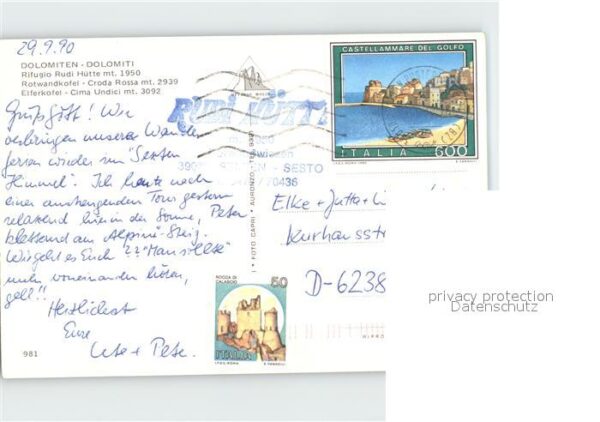 29.9.90
DOLOMITEN - DOLOMITI
Rifugio Rudi Hütte mt. 1950
Rotwandkofel - Croda Rossa mt. 2939
Elferkofel - Cima Undici mt. 3092
Grüß Gott! Wir
verbringen unsere Wander
ferien wieder im "Sexten
Himmel". Ich heute nach
einer anstrengenden Tour gestern
relaxend hier in der Sonne, Peter
kletternd am Alpini-Steig.
Wie geht es Euch?? "Man sollte"
mehr voneinander hören,
gell!!
Herzlichst
Eure
Ute + Peter
981
RUDI HÜTTE
SEXTEN - SESTO
70436
FOTO GAPRI - AURONZO
CASTELLAMMARE DEL GOLFO
ITALIA 600
Elke + Jutta +
Kurhausst
D-6238
ROCCA DI
CALASCIO
50
ITALIA
privacy protection
Datenschutz